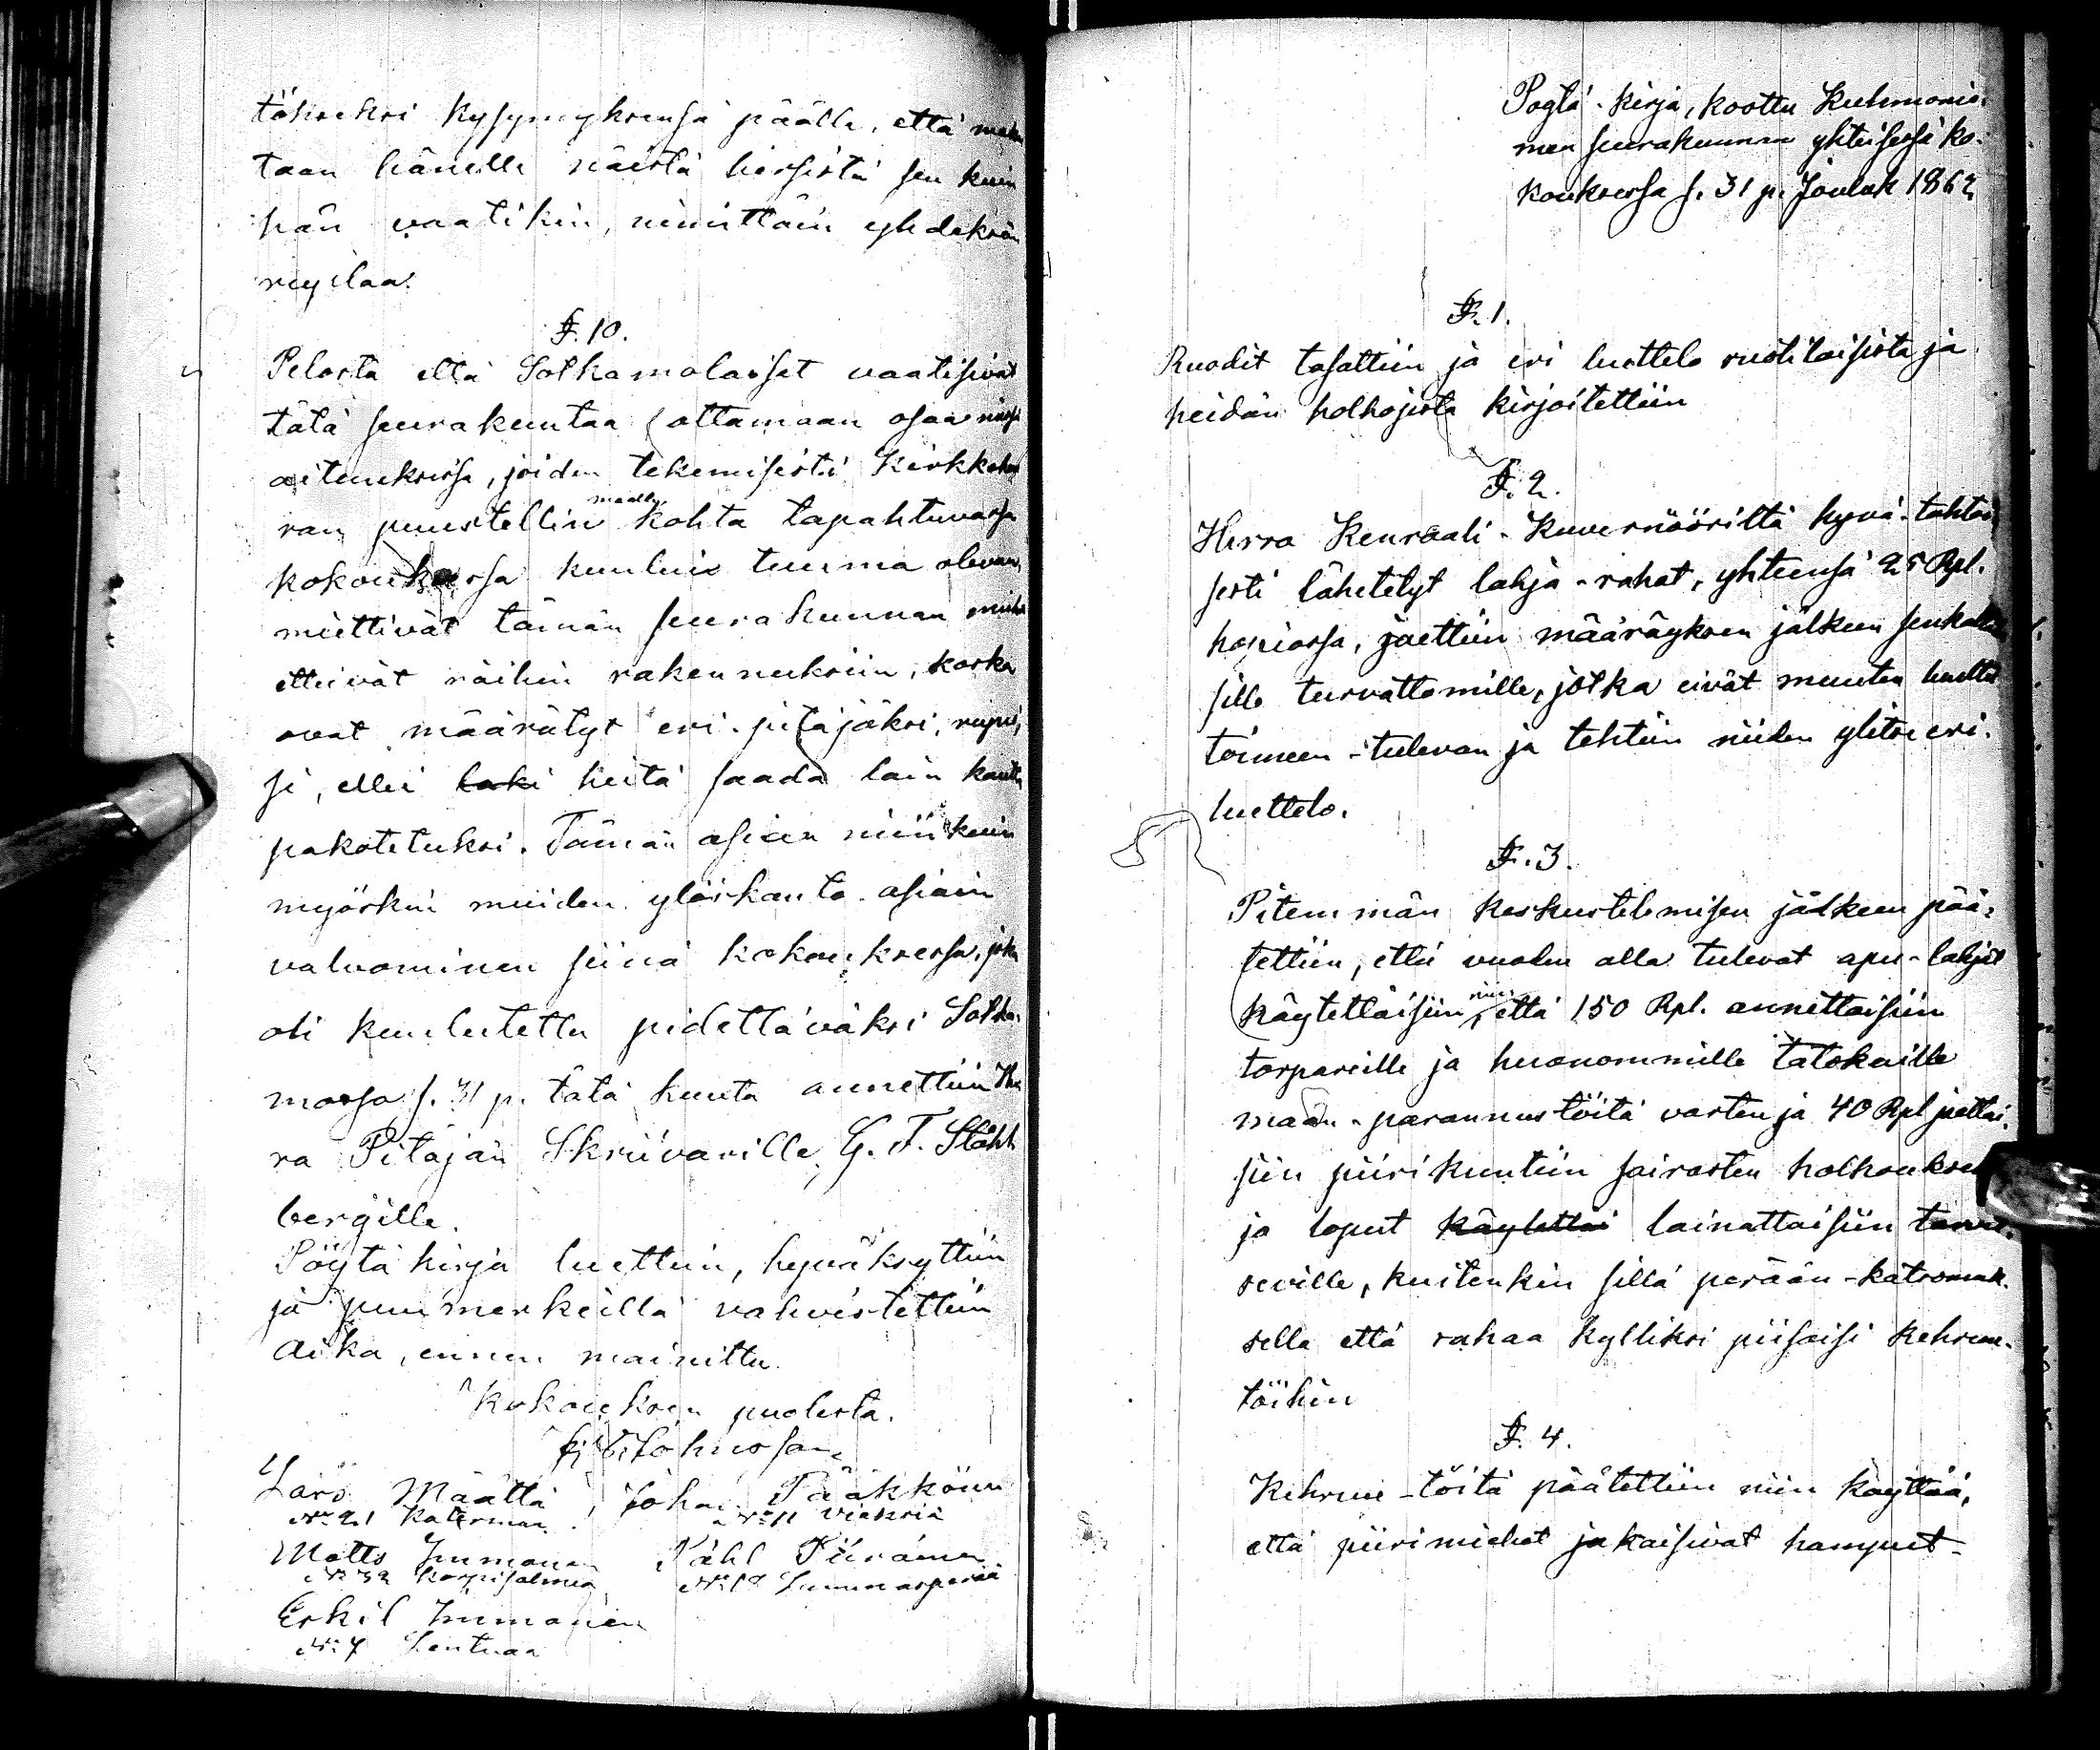 tökseksi kysymyksensä päälle, että
taan hänelle näistä hirsistä sen kuin
hän vaatikin, nimittäin yhdeksän
ruplaa.
§. 10.
Pelosta että Sotkamolaiset vaatisivat
tätä seurakuntaa ottamaan osaa
aitauksissa, joiden tekemisestä Kirkkoher
ran puustellin maalle kohta tapahtuvassa
kokouksessa kuuluis tuuma olevan,
miettivät tämän seurakunnan miehet
etteivät näihin rakennuksiin, koska
ovat määrätyt eri-pitäjäksi, rupei,
si, ellei laki heitä saada lain kautta
pakotetuksi. Tämän asian niinkuin
myöskin muiden ylöskanto-asiain
valvominen siinä kokouksessa, joka
oli kuulutettu pidettäväksi Sotka-
mossa s. 31 p. tätä kuuta annettiin Her
ra Pitäjän Skriivarille, G. F. Ståhl
bergille.
Pöytäkirja luettiin, hyväksyttiin
ja puumerkeillä vahvistettiin
Aika, ennen mainittu.
Kokouksen puolesta.
Lars Määttä Johan Pääkkönen
N:o 21 Katerma N:o 11 Vieksiä
Matts Immonen Påhl Piirainen
N:o 32 Korpisalmea N:o 18 Lammasperää
Erkil Immonen
N:o 7 Lentuaa
Pöytä-kirja, koottu Kuhmonie-
men seurakunnan yhteisessä ko-
kouksessa s. 31 p. Jouluk 1862
§. 1.
Ruodit tasattiin ja eri luettelo ruotilaisista ja
heidän holhojista kirjoitettiin
§. 2.
Herra Kenraali-Kuvernööriltä hyvä-tahtoi
sesti lähetetyt lahja-rahat, yhteensä 25 Rpl.
hopiassa, jaettiin määräyksen jälkeen senkal
sille turvattomille, jotka eivät muuten luultu
toimeen-tulevan ja tehtiin niiden ylitse eri-
luettelo.
§. 3.
Pitemmän keskustelemisen jälkeen pää-
tettiin, että vuoden alla tulevat apu-lahjat
käytettäisiin niin, että 150 Rpl. annettaisiin
torpareille ja huonommille talokkaille
maan-parannustöitä varten ja 40 Rpl jaettai-
siin piirikuntiin sairasten holhouksen
ja loput käytettäi lainattaisiin tarvit-
seville, kuitenkin sillä perään-katsomuk-
sella että rahaa kylliksi piisaisi kehruu-
töihin
§. 4.
Kehruu-töitä päätettiin niin käyttää,
että piirimiehet jakaisivat hamput-